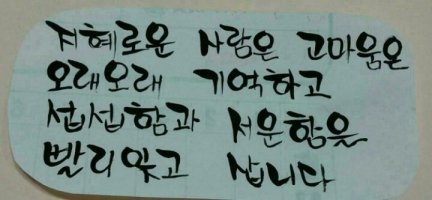 지혜로운 사람은 고마움은
오래오래 기억하고
섭섭함과 서운함은
빨리잊고 삽니다